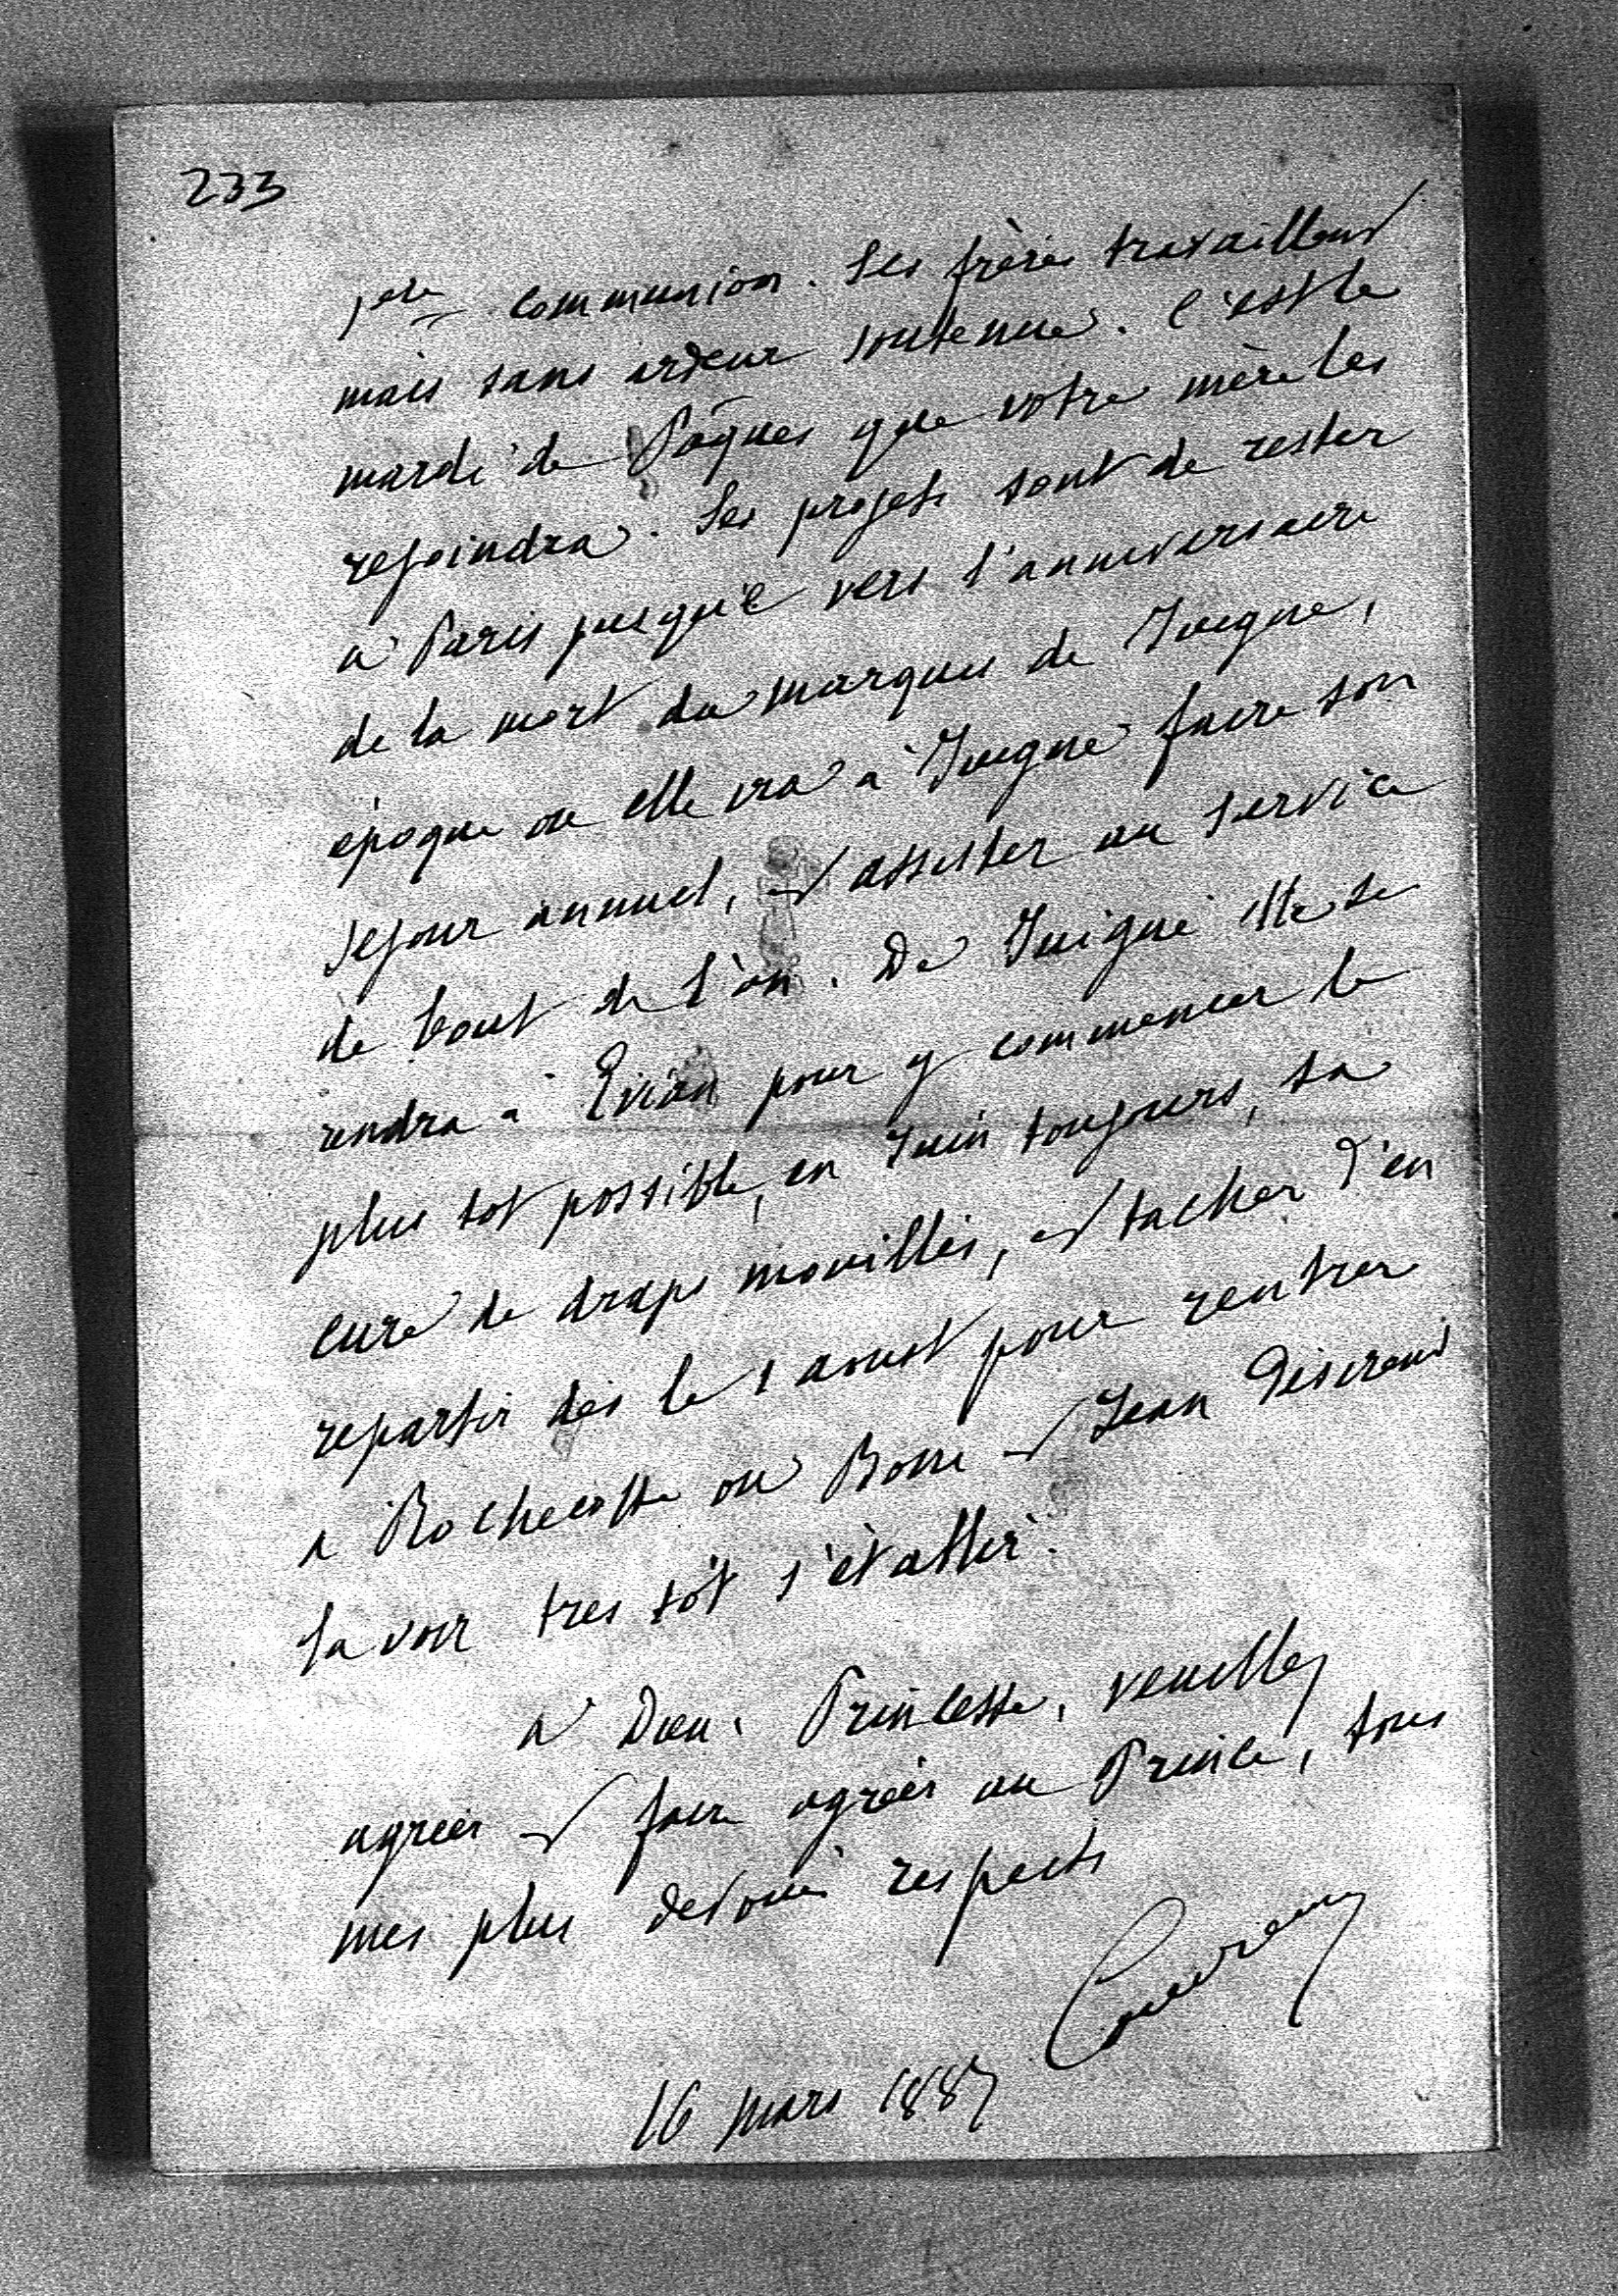 233
1ère communion. Ses frères travaillent
mais sans ardeur soutenue. C'est le
mardi de Pâques que votre mère les
rejoindra. Ses projets sont de rester
à Paris jusque vers l'anniversaire
de la mort du marquis de Juigné,
époque ou elle ira à Juigné faire son
sejour annuel, et assister au service
de bout de l'an. De Juigné elle se
rendra à Evian pour y commencer le
plus tot possible, en Juin toujours, sa
cure de draps mouillés, et tacher d'en
repartir dès le 1 aoust pour rentrer
à Rochecotte ou Boni et Jean desirent
la voir tres tôt s'établir.
à Dieu, Princesse, veuillez
agréer et faire agréer au Prince, tous
mes plus devoués respects
16 mars 1887